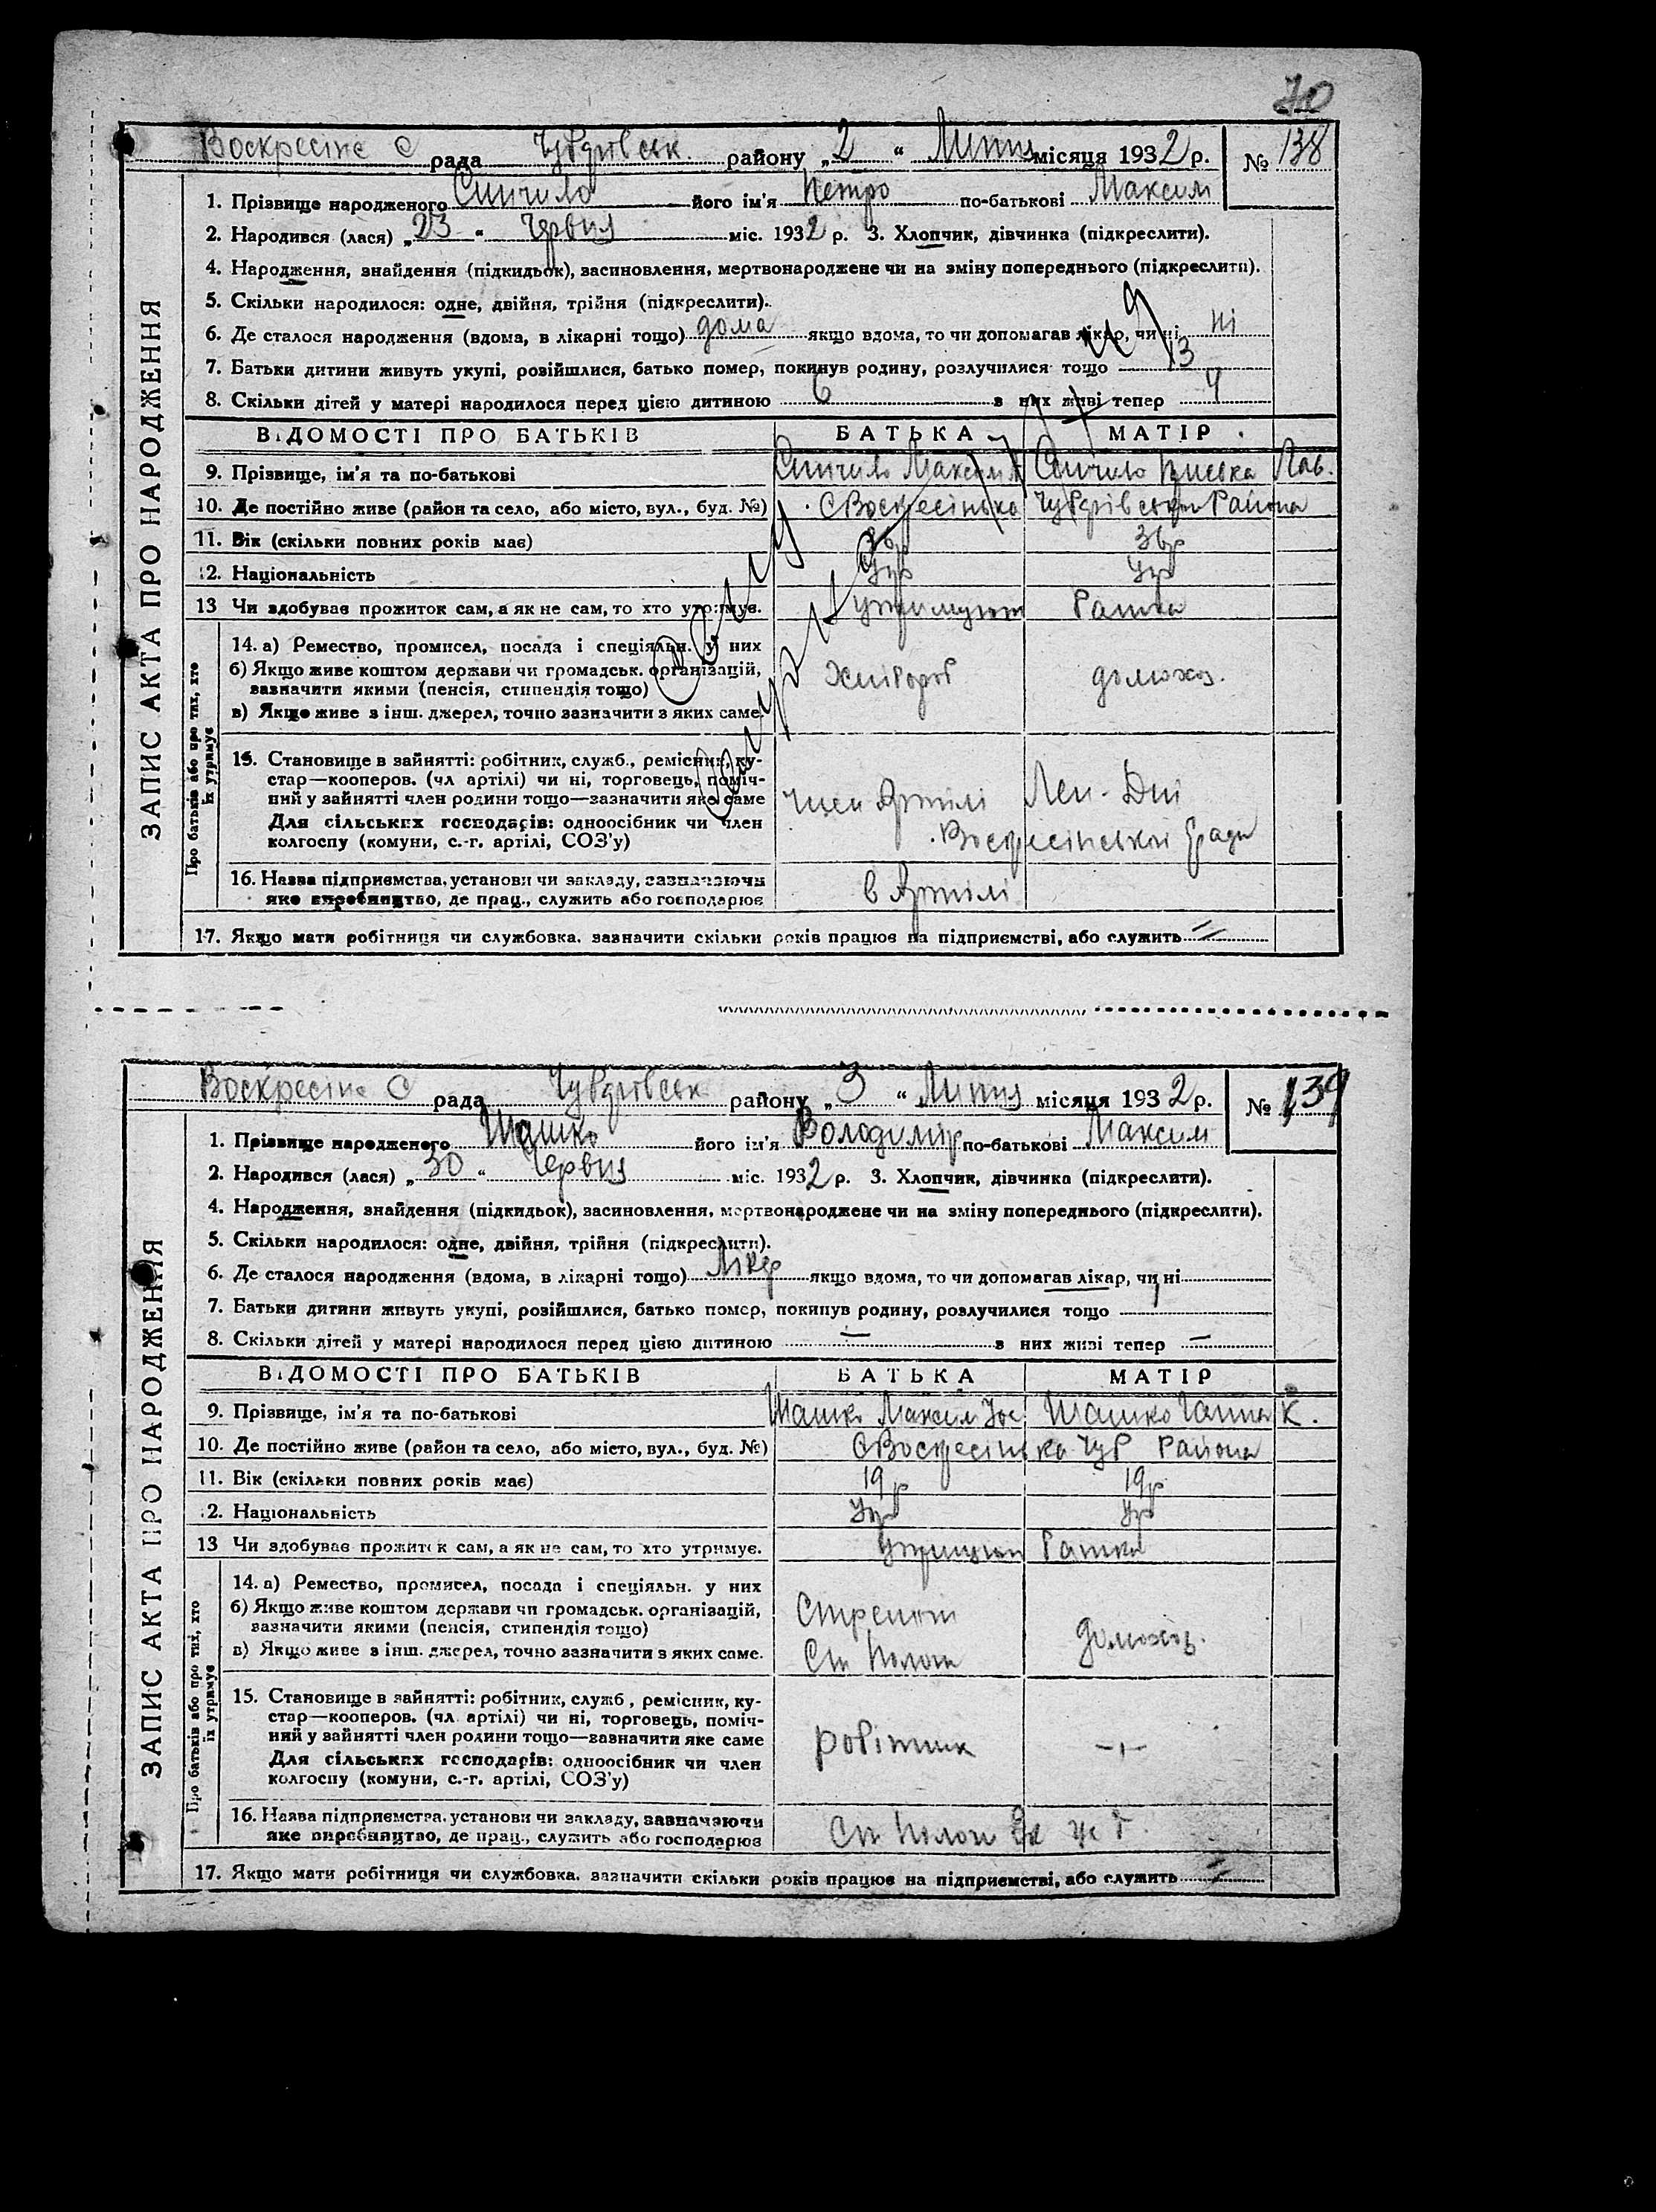 70
Воскресінс С рада Чубарівськ. району „2“ Липня місяця 1932 р. № 138
1. Прізвище народженого його ім'я Петро по-батькові Максим
2. Народився (лася) „23“ Червня міс. 1932 р. 3. Хлопчик, дівчинка (підкреслити).
4. Народження, знайдення (підкидьок), засиновлення, мертвонароджене чи на зміну попереднього (підкреслити).
5. Скільки народилося: одне, двійня, трійня (підкреслити).
6. Де сталося народження (вдома, в лікарні тощо) дома якщо вдома, то чи допомагав лікар, чи ні ні
7. Батьки дитини живуть укупі, розійшлися, батько помер, покинув родину, розлучилися тощо
8. Скільки дітей у матері народилося перед цією дитиною 6 в них живі тепер 4
ВІДОМОСТІ ПРО БАТЬКІВ БАТЬКА МАТІР
9. Прізвище, ім'я та по-батькові Максим
10. Де постійно живе (район та село, або місто, вул., буд. №) С Воскресінька Чубарівськои Району
11. Вік (скільки повних років має) 36р 36р
12. Національність Укр Укр
13 Чи здобував прожиток сам, а як не сам, то хто утримує.
14. а) Ремество, промисел, посада і спеціяльн. у них
б) Якщо живе коштом держави чи громадськ. організацій,
зазначити якими (пенсія, стипендія тощо)
Хлібороб домохоз.
в) Якщо живе з інш. джерел, точно зазначити з яких саме.
15. Становище в зайнятті: робітник, служб., ремісник, ку-
стар—кооперов. (чл артілі) чи ні, торговець, поміч-
ний у зайнятті член родини тощо—зазначити яке саме
член Артілі
Для сільських господарів: одноосібник чи член
колгоспу (комуни, с.-г. артілі, СОЗ'у)
Воскресінськои
16. Назва підприємства, установи чи закладу, зазначаючи
яке виробництво, де прац., служить або господарює
в Артілі
17. Якщо мати робітниця чи службовка, зазначити скільки років працює на підприємстві, або служить =
ЗАПИС АКТА ПРО НАРОДЖЕННЯ
Про батьків або про тих, хто їх утримує
Воскресінс С рада Чубарівськ району „3“ Липня місяця 1932 р. № 139
1. Прізвище народженого Шашко його ім'я Володимир по-батькові Максим
2. Народився (лася) „30“ Червня міс. 1932 р. 3. Хлопчик, дівчинка (підкреслити).
4. Народження, знайдення (підкидьок), засиновлення, мертвонароджене чи на зміну попереднього (підкреслити).
5. Скільки народилося: одне, двійня, трійня (підкреслити).
6. Де сталося народження (вдома, в лікарні тощо) Лікар якщо вдома, то чи допомагав лікар, чи ні
7. Батьки дитини живуть укупі, розійшлися, батько помер, покинув родину, розлучилися тощо
8. Скільки дітей у матері народилося перед цією дитиною — в них живі тепер —
ВІДОМОСТІ ПРО БАТЬКІВ БАТЬКА МАТІР
9. Прізвище, ім'я та по-батькові Шашко Максим Шашко Ганна К.
10. Де постійно живе (район та село, або місто, вул., буд. №) С Воскресінька Чуб Района
11. Вік (скільки повних років має) 19р 19р
12. Національність Укр Укр
13 Чи здобував прожиток сам, а як не сам, то хто утримує.
14. а) Ремество, промисел, посада і спеціяльн. у них
б) Якщо живе коштом держави чи громадськ. організацій,
зазначити якими (пенсія, стипендія тощо)
домохоз.
в) Якщо живе з інш. джерел, точно зазначити з яких саме.
Ст Пологи
15. Становище в зайнятті: робітник, служб., ремісник, ку-
стар—кооперов. (чл артілі) чи ні, торговець, поміч-
ний у зайнятті член родини тощо—зазначити яке саме
робітник
Для сільських господарів: одноосібник чи член
колгоспу (комуни, с.-г. артілі, СОЗ'у)
16. Назва підприємства, установи чи закладу, зазначаючи
яке виробництво, де прац., служить або господарює
Ст Пологи
17. Якщо мати робітниця чи службовка, зазначити скільки років працює на підприємстві, або служить =
ЗАПИС АКТА ПРО НАРОДЖЕННЯ
Про батьків або про тих, хто їх утримує